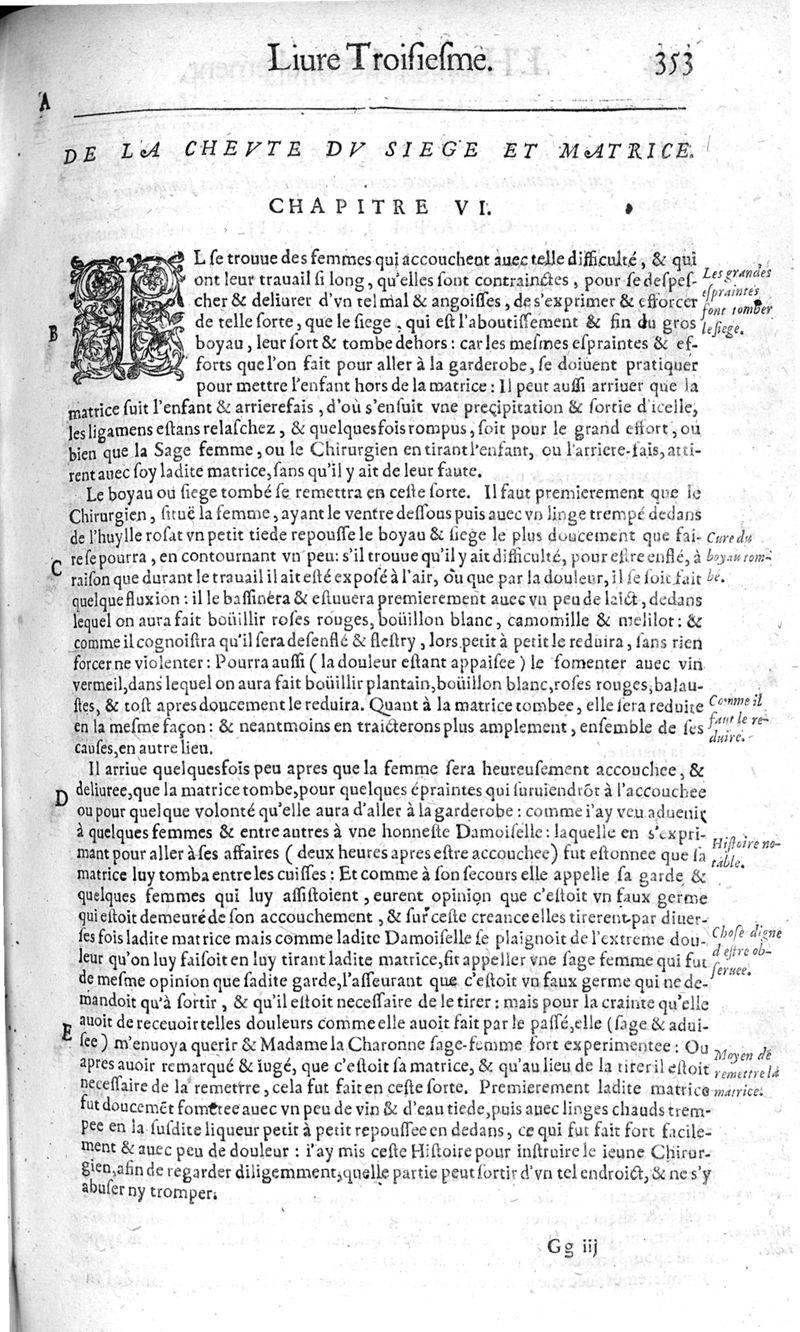 Liure Troisiesme. 353
A
DE LA CHEVTE DV SIEGE ET MATRICE.
CHAPITRE VI.
IL se trouue des femmes qui accouchent auec telle difficulté, & qui
ont leur trauail si long, qu'elles sont contrainctes, pour se despes-
cher & deliurer d'vn tel mal & angoisses, de s'exprimer & efforcer
de telle sorte, que le siege, qui est l'aboutissement & fin du gros
boyau, leur sort & tombe dehors: car les mesmes espraintes & ef-
forts que l'on fait pour aller à la garderobe, se doiuent pratiquer
pour mettre l'enfant hors de la matrice: Il peut aussi arriuer que la
matrice suit l'enfant & arrierefais, d'où s'ensuit vne precipitation & sortie d'icelle,
les ligamens estans relaschez, & quelquesfois rompus, soit pour le grand effort, ou
bien que la Sage femme, ou le Chirurgien en tirant l'enfant, ou l'arriere-fais, atti-
rent auec soy ladite matrice, sans qu'il y ait de leur faute.
Les grandes
espraintes
font tomber
le siege.
B
Le boyau ou siege tombé se remettra en ceste sorte. Il faut premierement que le
Chirurgien, situë la femme, ayant le ventre dessous puis auec vn linge trempé dedans
de l'huylle rosat vn petit tiede repousse le boyau & siege le plus doucement que fai-
re se pourra, en contournant vn peu: s'il trouue qu'il y ait difficulté, pour estre enflé, à
raison que durant le trauail il ait esté exposé à l'air, ou que par la douleur, il se soit fait
quelque fluxion: il le bassinera & estuuera premierement auec vn peu de laict, dedans
lequel on aura fait boüillir roses rouges, boüillon blanc, camomille & melilot: &
comme il cognoistra qu'il sera desenflé & flestry, lors petit à petit le reduira, sans rien
forcer ne violenter: Pourra aussi (la douleur estant appaisee) le fomenter auec vin
vermeil, dans lequel on aura fait boüillir plantain, boüillon blanc, roses rouges, balau-
stes, & tost apres doucement le reduira. Quant à la matrice tombee, elle sera reduite
en la mesme façon: & neantmoins en traicterons plus amplement, ensemble de ses
causes, en autre lieu.
Cure du
boyau tom-
bé.
C
Comme il
faut le re-
duire.
Il arriue quelquesfois peu apres que la femme sera heureusement accouchee, &
deliuree, que la matrice tombe, pour quelques épraintes qui suruiendrōt à l'accouchee
ou pour quelque volonté qu'elle aura d'aller à la garderobe: comme i'ay veu aduenir
à quelques femmes & entre autres à vne honneste Damoiselle: laquelle en s'expri-
mant pour aller à ses affaires (deux heures apres estre accouchee) fut estonnee que sa
matrice luy tomba entre les cuisses: Et comme à son secours elle appelle sa garde &
quelques femmes qui luy assistoient, eurent opinion que c'estoit vn faux germe
qui estoit demeuré de son accouchement, & sur ceste creance elles tirerent par diuer-
ses fois ladite matrice mais comme ladite Damoiselle se plaignoit de l'extreme dou-
leur qu'on luy faisoit en luy tirant ladite matrice, fit appeller vne sage femme qui fut
de mesme opinion que sadite garde, l'asseurant que c'estoit vn faux germe qui ne de-
mandoit qu'à sortir, & qu'il estoit necessaire de le tirer: mais pour la crainte qu'elle
auoit de receuoir telles douleurs comme elle auoit fait par le passé, elle (sage & adui-
see) m'enuoya querir & Madame la Charonne sage-femme fort experimentee: Ou
apres auoir remarqué & iugé, que c'estoit sa matrice, & qu'au lieu de la tirer il estoit
necessaire de la remettre, cela fut fait en ceste sorte. Premierement ladite matrice
fut doucemēt fomētee auec vn peu de vin & d'eau tiede, puis auec linges chauds trem-
pee en la susdite liqueur petit à petit repoussee en dedans, ce qui fut fait fort facile-
ment & auec peu de douleur: i'ay mis ceste Histoire pour instruire le ieune Chirur-
gien, afin de regarder diligemment, quelle partie peut sortir d'vn tel endroict, & ne s'y
abuser ny tromper.
D
Histoire no-
table.
Chose digne
d'estre ob-
seruee.
E
Moyen de
remettre la
matrice.
Gg iij